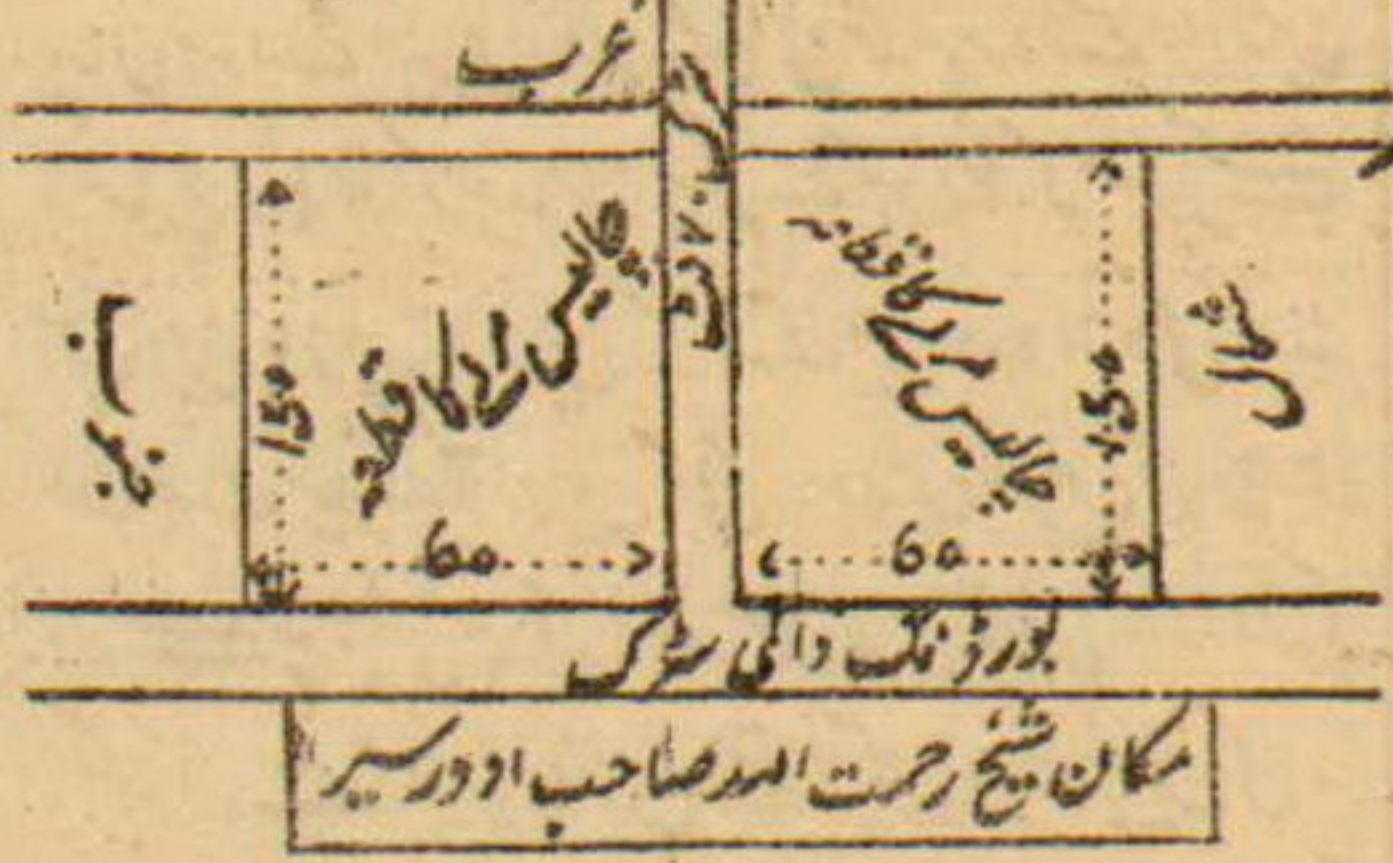 غرب
شمال
چالیس مرلے کا قطعہ
150
60
چالیس مرلے کا قطعہ
150
60
جنوب
بورڈنگ والی سڑک
مکان شیخ رحمت اللہ صاحب اوورسیر